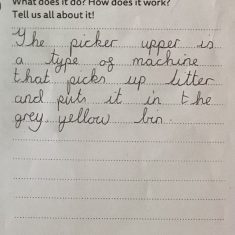 What does it do? How does it work?
Tell us all about it!
The picker upper is
a type of machine
that picks up litter
and puts it in the
grey yellow bin.